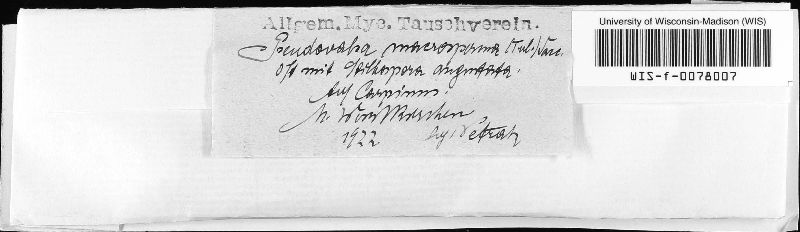 Allgem. Myc. Tauschverein.
Pseudovalsa macrosperma (Tul.) Sacc.
Oft mit angustata.
Auf Carpinus.
M. Weisskirchen,
1922 lg. Petrak
University of Wisconsin-Madison (WIS)
WIS-f-0078007